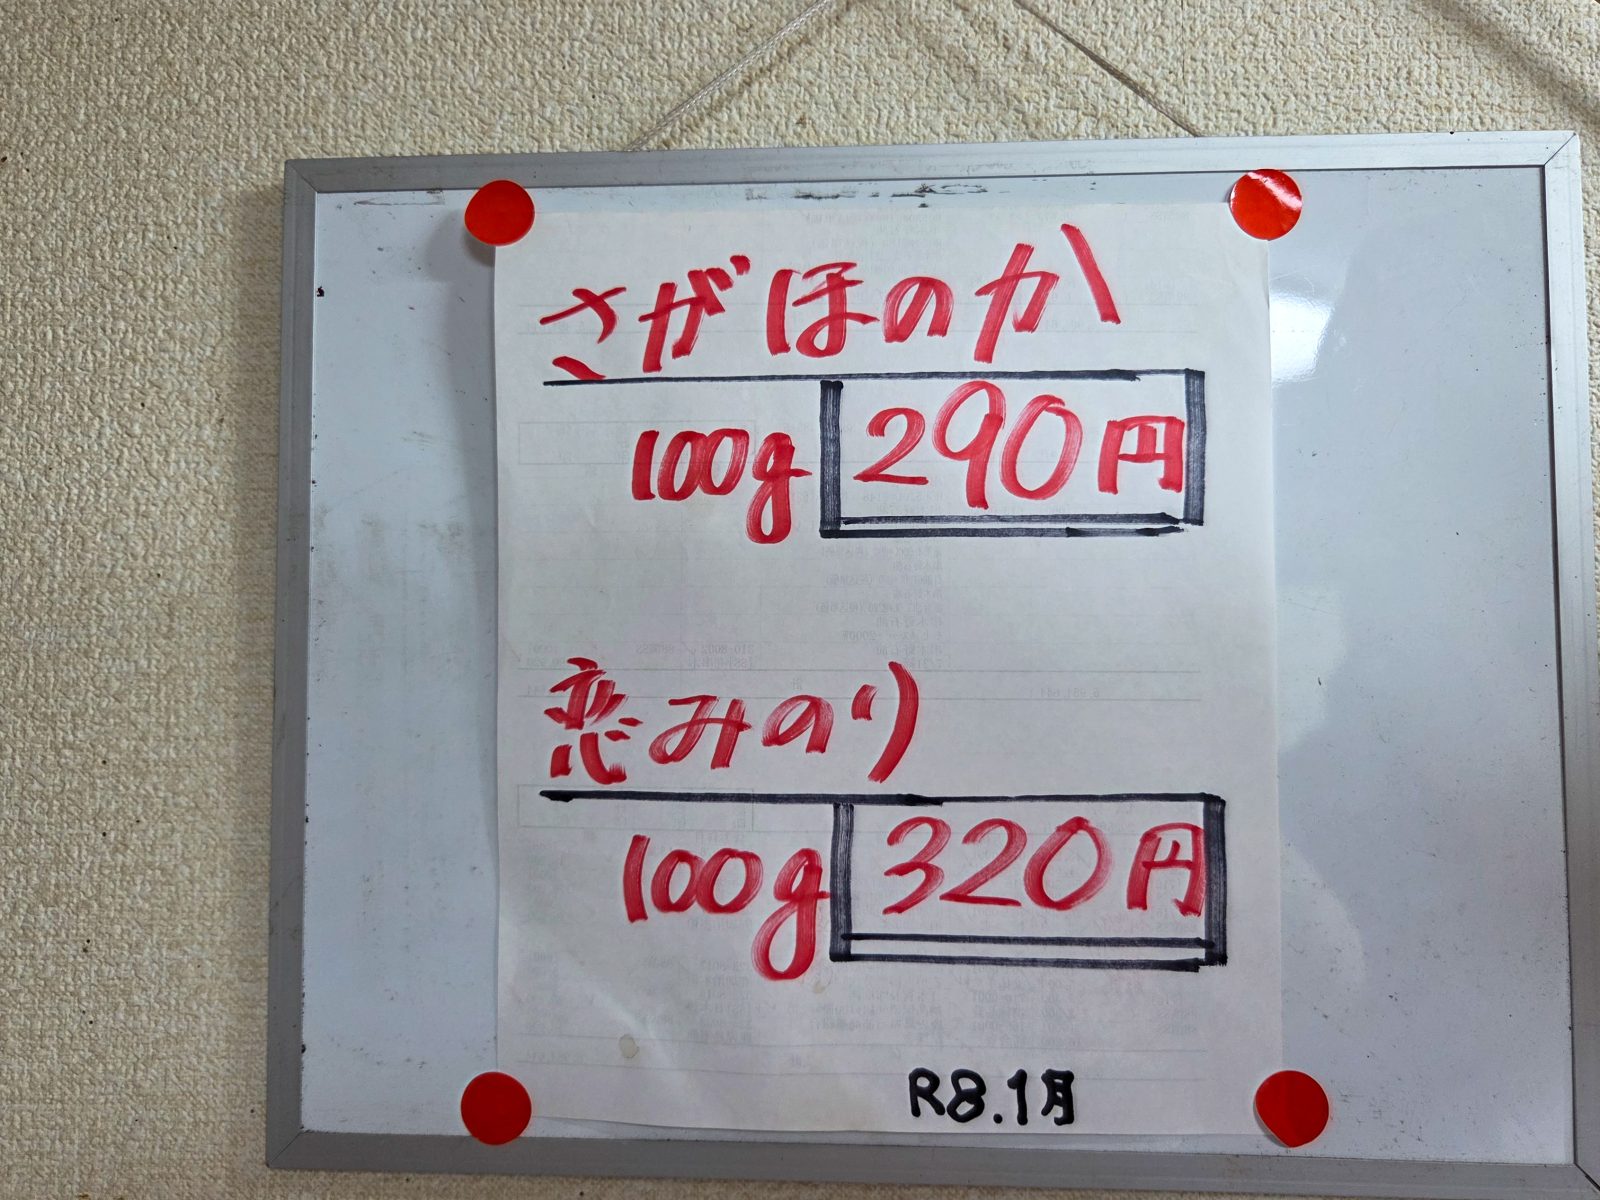 さがほのか
100g 290円
恋みのり
100g 320円
R8.1月